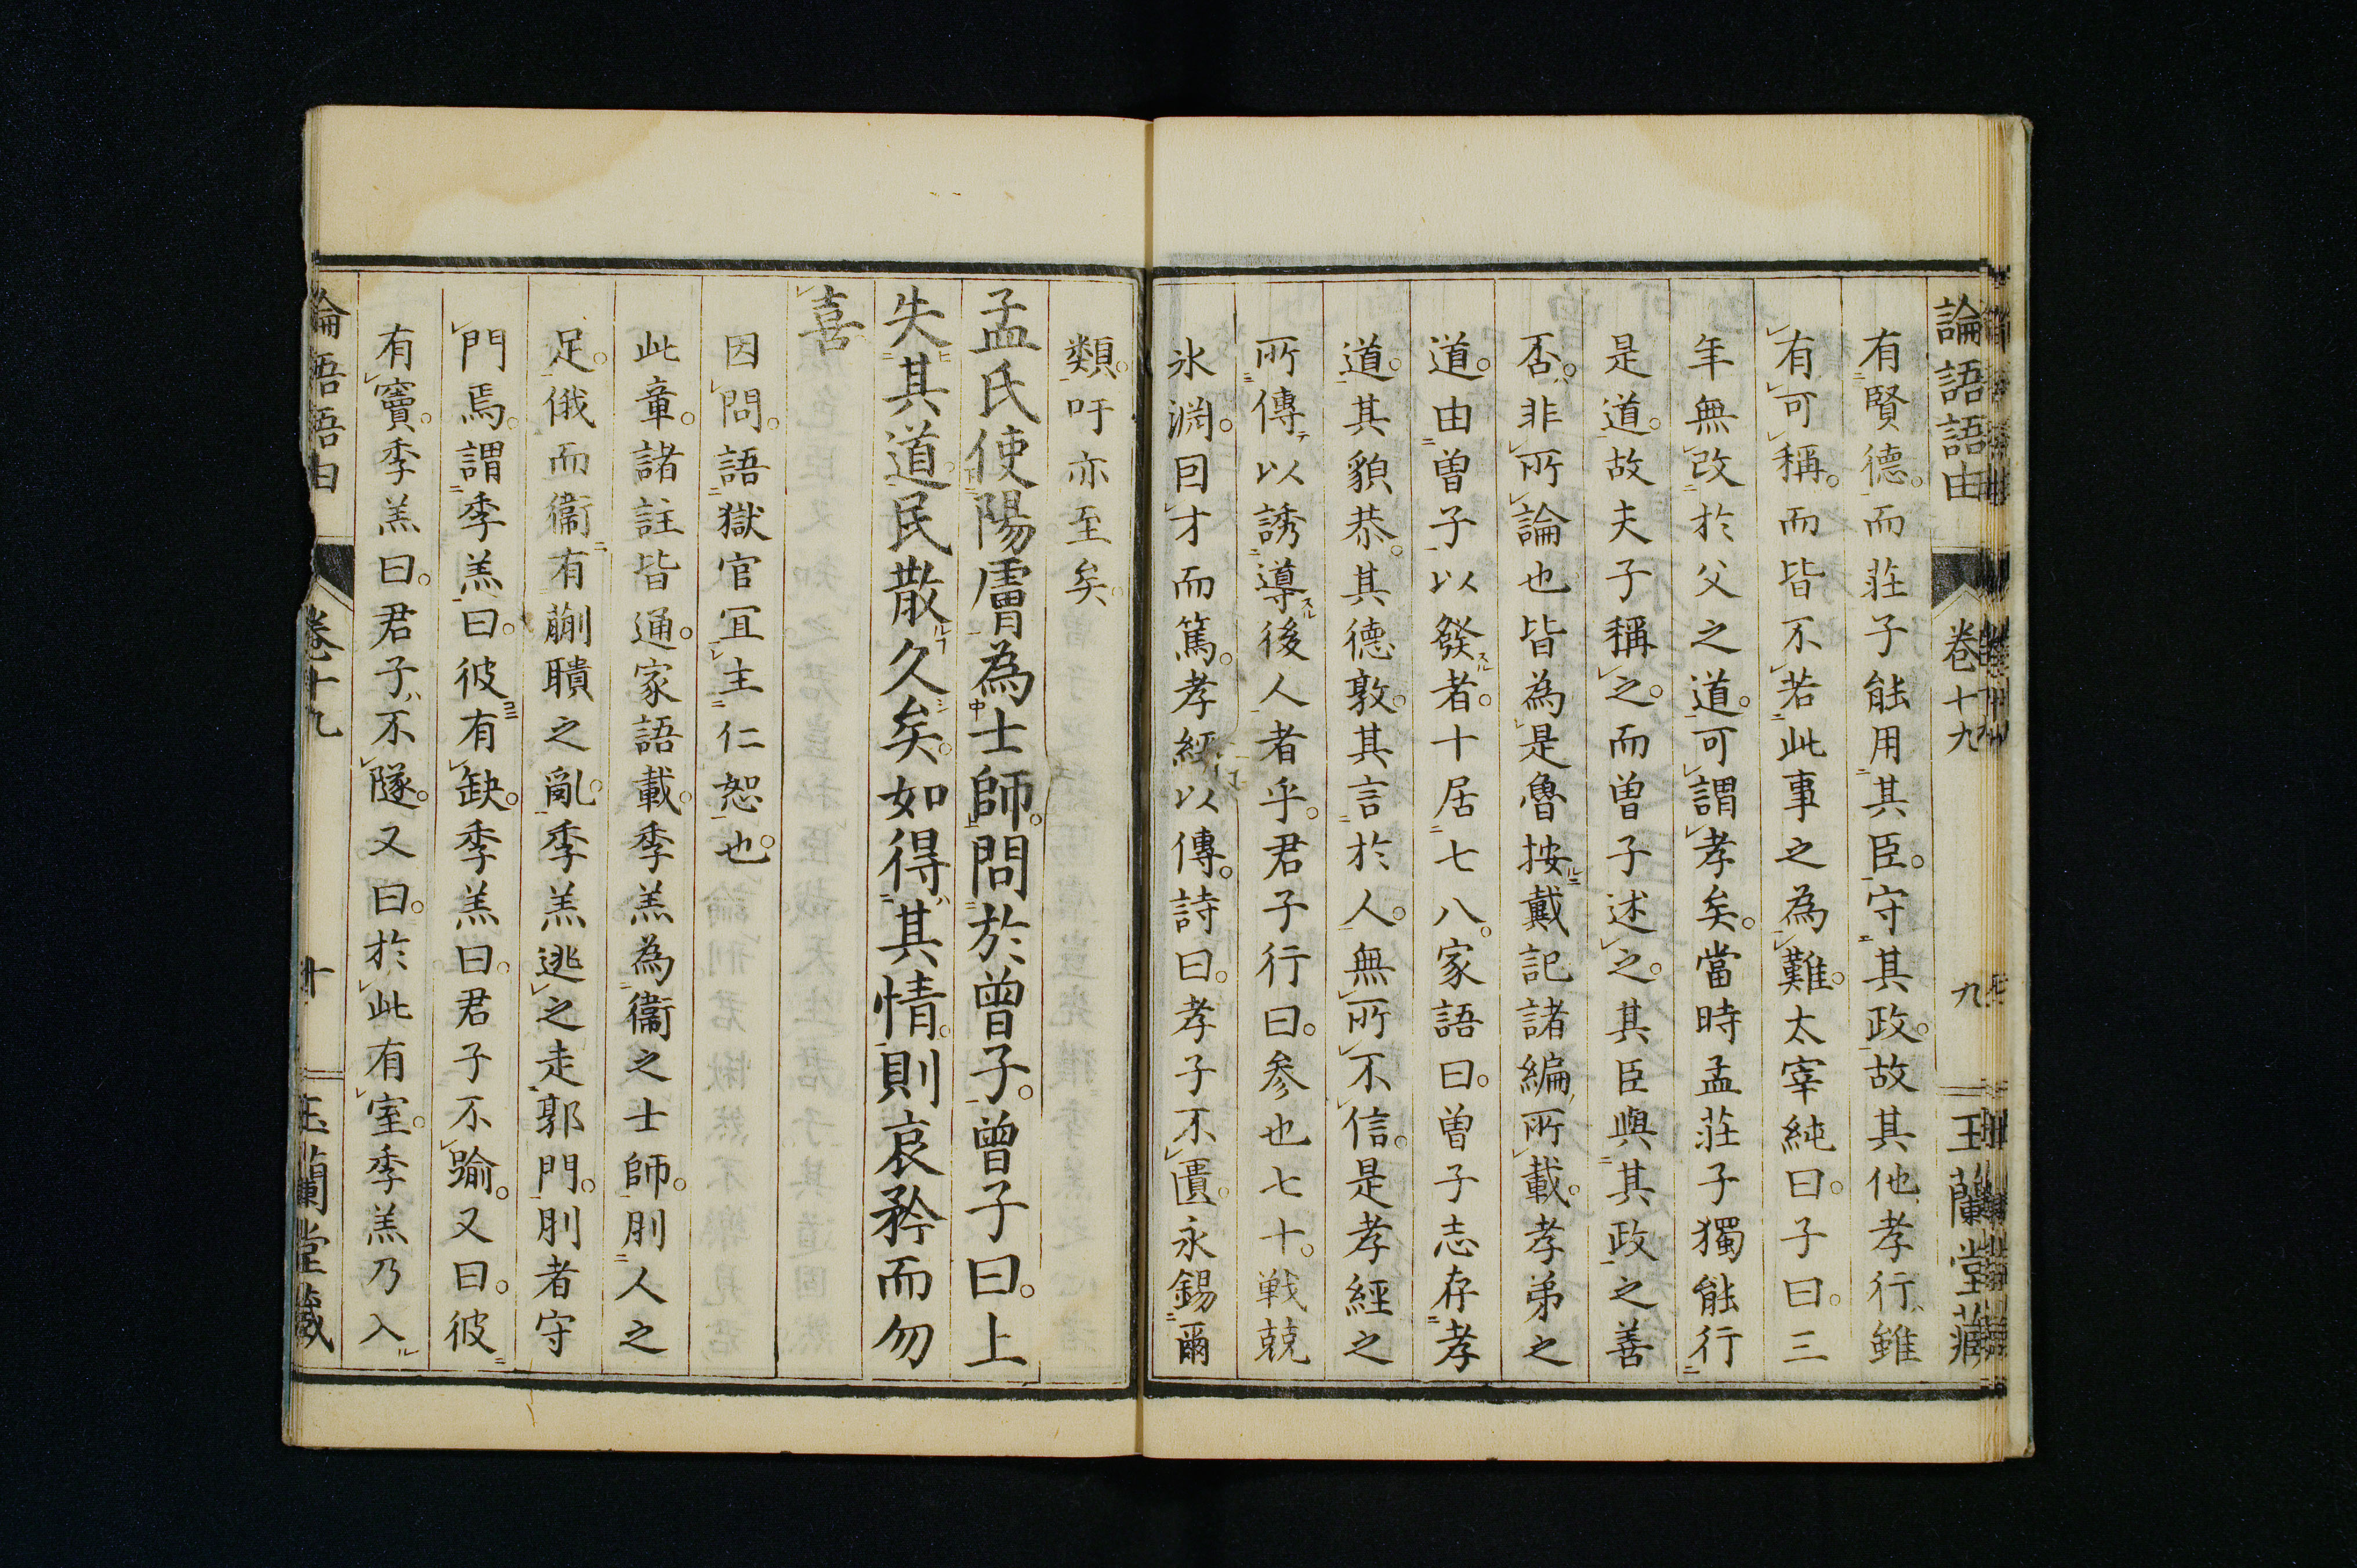 論語語由 卷十九 九 玉蘭堂藏
有賢德。而莊子能用其臣。守其政。故其他孝行雖
有可稱。而皆不若此事之為難。太宰純曰。子曰。三
年無改於父之道。可謂孝矣。當時孟莊子獨能行
是道。故夫子稱之。而曾子述之。其臣與其政之善
否。非所論也皆為是魯按戴記諸編所載。孝弟之
道。由曾子以發者。十居七八。家語曰。曾子志存孝
道。其貌恭。其德敦。其言於人。無所不信。是孝經之
所傳以誘導後人者乎。君子行曰。参也七十。戦兢
氷淵。囙才而篤。孝經以傳。詩曰。孝子不匱。永錫爾
類。吁亦至矣。
孟氏使陽膚為士師。問於曾子。曾子曰。上
失其道。民散久矣。如得其情。則哀矜而勿
喜
因問。語獄官冝主仁恕也。
此章。諸註皆通。家語載。季羔為衞之士師。刖人之
足。俄而衞有蒯聵之亂。季羔逃之走郭門。刖者守
門焉。謂季羔曰。彼有缺。季羔曰。君子不踰。又曰。彼
有竇。季羔曰。君子不隧。又曰。於此有室。季羔乃入
論語語由 卷十九 十 玉蘭堂藏